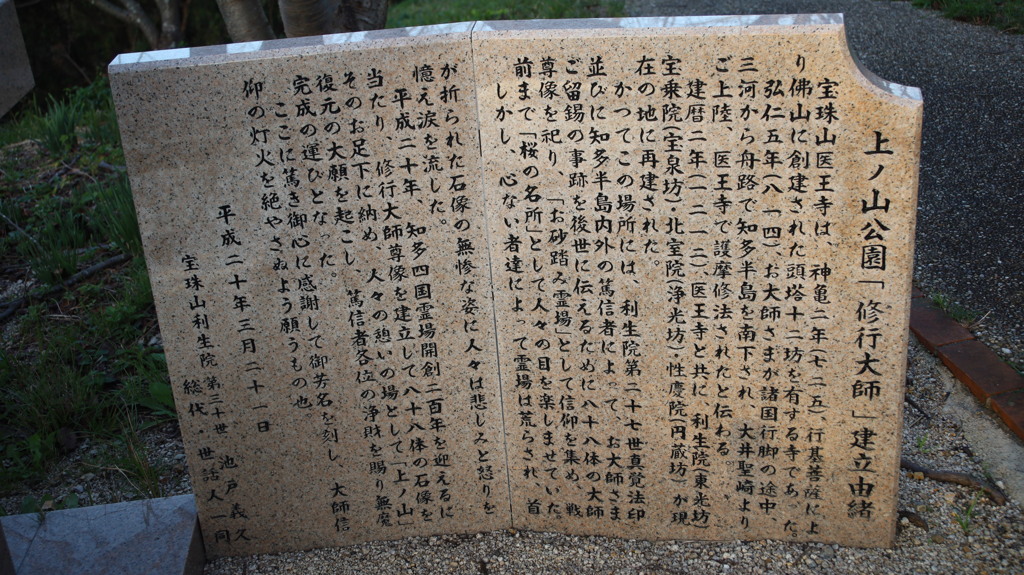 上ノ山公園「修行大師」建立由緒
宝珠山医王寺は、神亀二年(七二五)行基菩薩によ
り佛山に創建された頭塔十二坊を有する寺であった。
弘仁五年(八一四)、お大師さまが諸国行脚の途中、
三河から舟路で知多半島を南下され、大井聖崎より
ご上陸、医王寺で護摩修法されたと伝わる。
建暦二年(一二一二)、医王寺と共に利生院(東光坊)
宝乗院(宝泉坊)・北室院(浄光坊)・性慶院(円蔵坊)が現
在の地に再建された。
かつてこの場所には、利生院第二十七世真覚法印
並びに知多半島内外の篤信者によって、お大師さま
ご留錫の事跡を後世に伝えるために八十八体の大師
尊像を祀り、「お砂踏み霊場」として信仰を集め、戦
前まで「桜の名所」として人々の目を楽しませていた。
しかし、心ない者達によって霊場は荒らされ、首
が折られた石像の無惨な姿に人々は悲しみと怒りを
憶え涙を流した。
平成二十年、知多四国霊場開創二百年を迎えるに
当たり、修行大師尊像を建立して八十八体の石像を
そのお足下に納め、人々の憩いの場として「上ノ山」
復元の大願を起こし、篤信者各位の浄財を賜り無魔
完成の運びとなった。
ここに篤き御心に感謝して御芳名を刻し、大師信
仰の灯火を絶やさぬよう願うもの也
平成二十年三月二十一日
宝珠山利生院 第三十世 池戸義久
総代・世話人一同